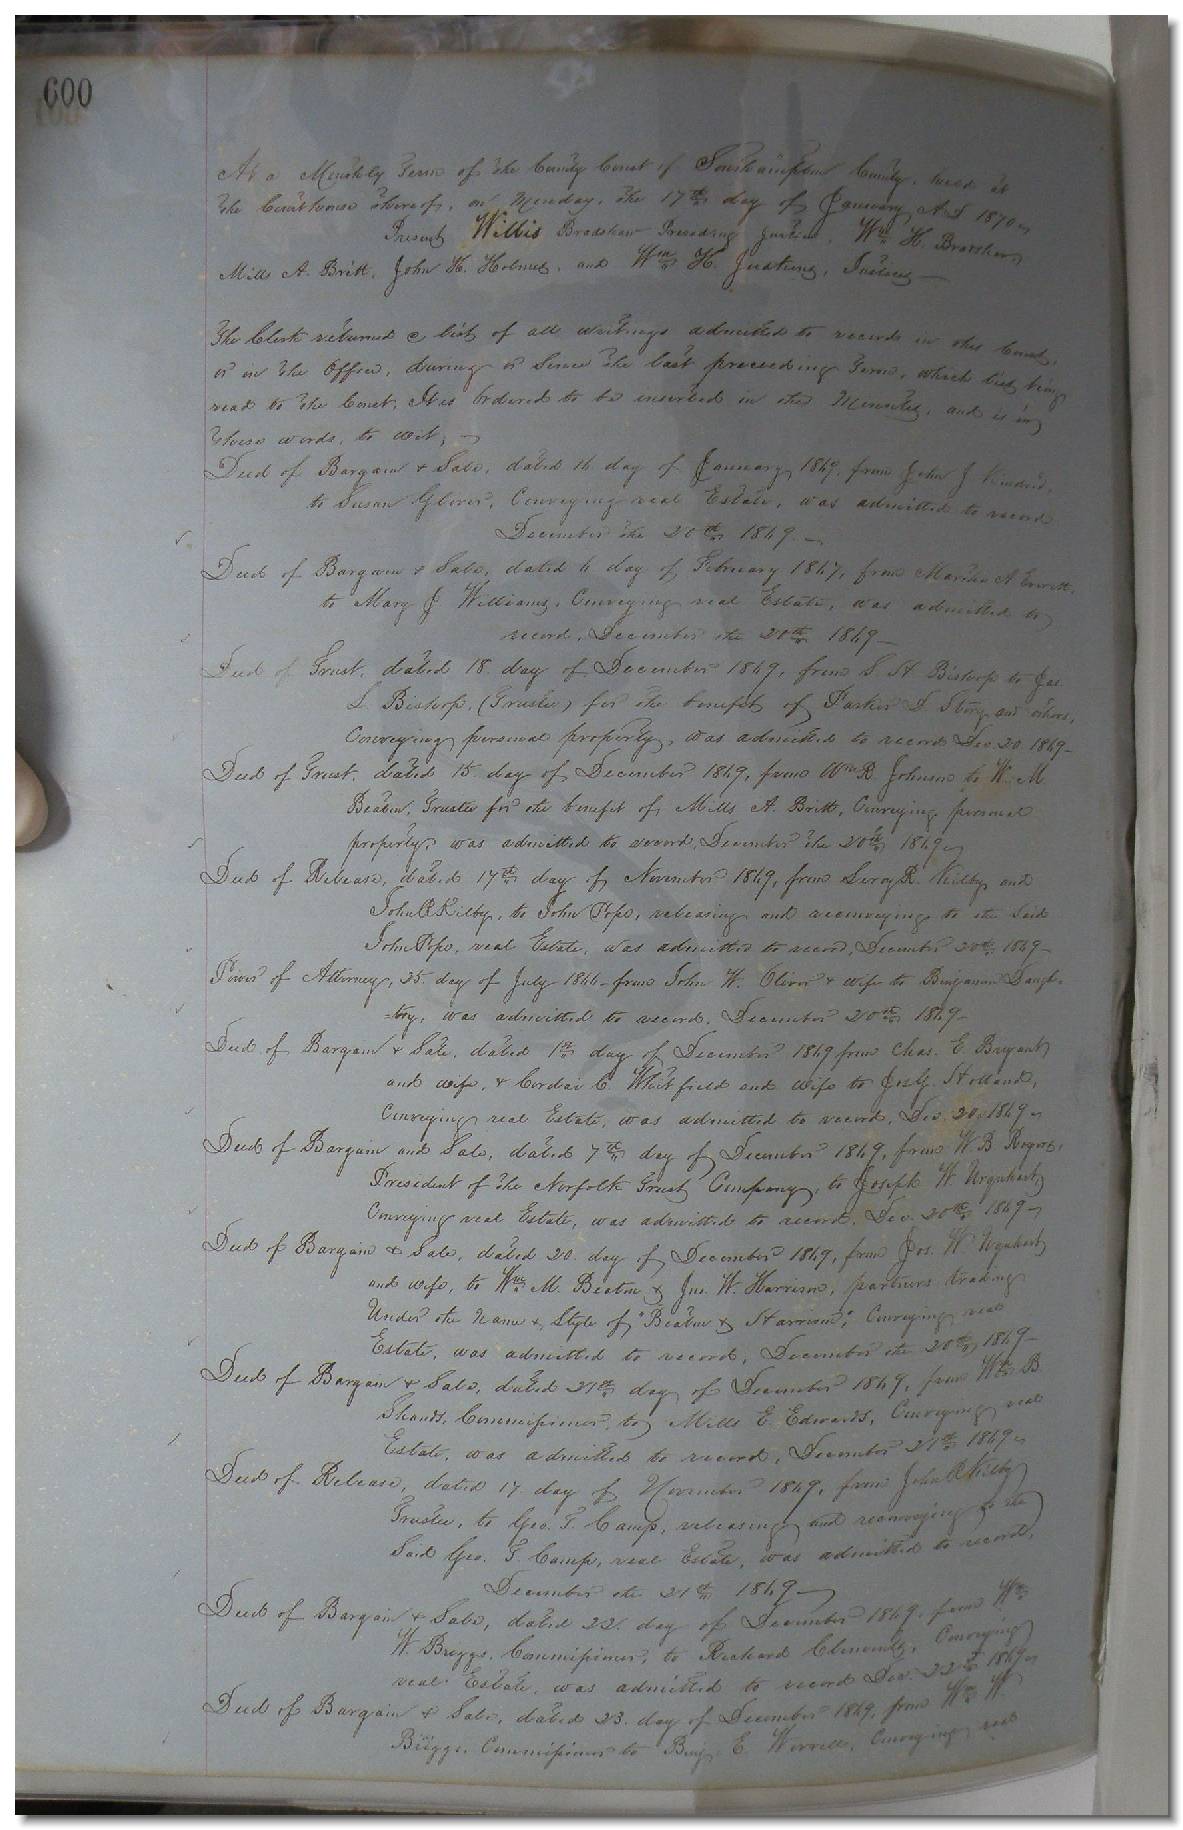 600
At a Monthly Term of the County Court of Southampton County, held at
the Courthouse thereof, on Monday, the 17th day of January A D 1870
Present Willis Bradshaw Presiding Justice, Wm H. Bradshaw,
Mills A. Britt, John H. Holmes, and Wm H. Justices
The Clerk returned a list of all writings admitted to records in this Court,
or in the Office, during or Since the last preceeding Term, which list being
read to the Court, It is Ordered to be inserted in the Minutes, and is in
these words, to wit;
Deed of Bargain & Sale, dated day of January 1869, from John J Kindred,
to Susan Glover, Conveying real Estate, was admitted to record
December the 20th 1869.
Deed of Bargain & Sale, dated 6 day of February 1867, from Martha A
to Mary J Williams, Conveying real Estate, was admitted to
record, December the 20th 1869
Deed of Trust, dated 18 day of December 1869, from S. H Bishop to Jas.
L. Bishop, (Trustee) for the benefit of Parker D and others,
Conveying personal property, was admitted to record Dec. 20 1869
Deed of Trust, dated 15 day of December 1869, from Wm R. Johnson to W. M
Beaton, Trustee for the benefit of Mills A. Britt, Conveying personal
property, was admitted to record, December the 20th 1869
Deed of Release, dated 17th day of November 1869, from Leroy R. Kilby and
John R Kilby, to John Pope, releasing and reconveying to the Said
John Pope, real Estate, was admitted to record, December 20th 1869
Power of Attorney, 25. day of July 1866 from John W. Oliver & wife to Benjamin Daugh-
=try, was admitted to record, December 20th 1869
Deed of Bargain & Sale, dated 1st day of December 1869 from Chas. E Bryant
and wife, & C Whitfield and wife to Jos G. Holland,
Conveying real Estate, was admitted to record, Dec. 20, 1869
Deed of Bargain and Sale, dated 7th day of December 1869, from W. B Rogers,
President of the Norfolk Trust Company, to Joseph W Urquhart,
Conveying real Estate, was admitted to record, Dec. 20th 1869
Deed of Bargain & Sale, dated 20. day of December 1869, from Jos. W Urquhart
and wife, to Wm M. Beaton & Jno. W. Harrison, partners trading
Under the Name & Style of "Beaton & Harrison", Conveying real
Estate, was admitted to record, December the 20th 1869
Deed of Bargain & Sale, dated 21st day of December 1869, from Wm B
Shands, Commissioner, to Mills E. Edwards, Conveying real
Estate, was admitted to record, December 21st 1869
Deed of Release, dated 17 day of November 1869, from John R Kilby
Trustee, to Geo. T. Camp, releasing and reconveying to the
Said Geo. T. Camp, real Estate, was admitted to record,
December the 21st 1869
Deed of Bargain & Sale, dated 22. day of December 1869, from Wm
W. Briggs, Commissioner, to Richard Clements, Conveying
real Estate, was admitted to record Dec. 22d 1869
Deed of Bargain & Sale, dated 23. day of December 1869, from Wm W
Briggs, Commissioner to Benj. E. Worrell, Conveying real